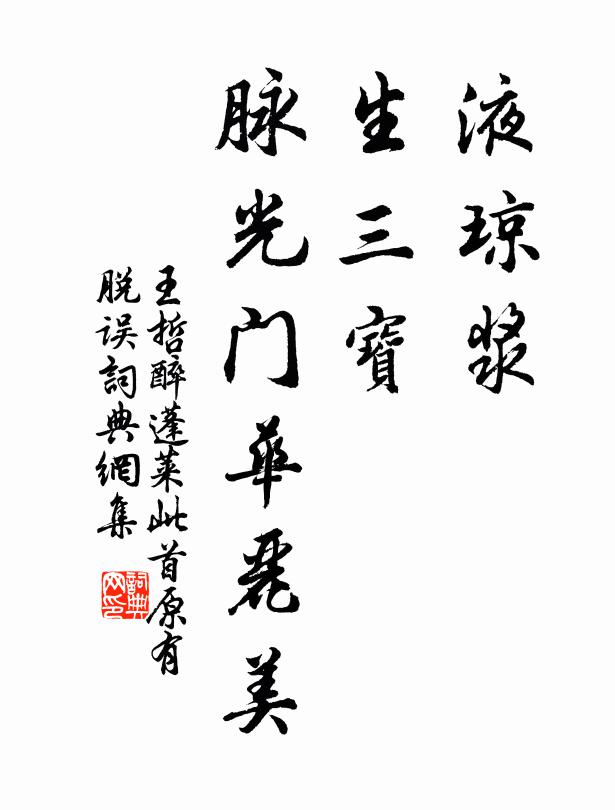 液琼浆
生三寶
脉光门華麗美
王哲醉蓬莱此首原有
脱误詞典網集
詞典网印